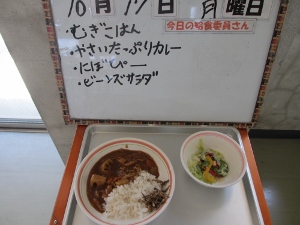 10月17日 月曜日
今日の給食委員さん
・むぎごはん
・やさいたっぷりカレー
・にぼぴー
・ビーンズサラダ